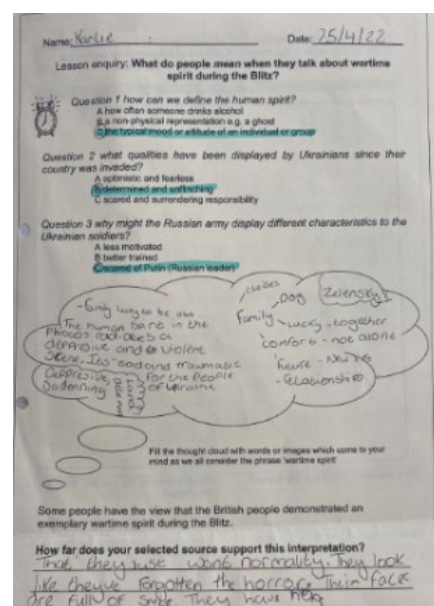 Name: Karlie Date: 25/4/22
Lesson enquiry: What do people mean when they talk about wartime
spirit during the Blitz?
Question 1 how can we define the human spirit?
A how often someone drinks alcohol
B a non-physical representation e.g. a ghost
C the typical mood or attitude of an individual or group
Question 2 what qualities have been displayed by Ukrainians since their
country was invaded?
A optimistic and fearless
B determined and unflinching
C scared and surrendering responsibility
Question 3 why might the Russian army display different characteristics to the
Ukrainian soldiers?
A less motivated
B better trained
C scared of Putin (Russian leader)
- family to be
The human in the
photos a
depressive and violent
scene. Its sad and traumatic
for the people
of Ukraine
Oppressive,
Saddening
Dog
Zelensky
family
- Lucky - together
comfort - not alone
- relasionship
Fill the thought cloud with words or images which come to your
mind as we all consider the phrase 'wartime spirit'
Some people have the view that the British people demonstrated an
exemplary wartime spirit during the Blitz.
How far does your selected source support this interpretation?
That they just want normality. They look
like theyve forgotten the horrors. Their faces
are full of smile. They have